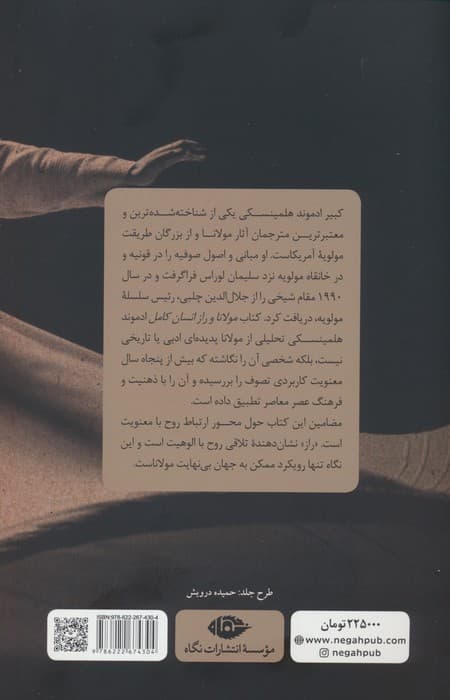 کبیر ادموند هلمینسکی یکی از شناخته‌شده‌ترین و
معتبرترین مترجمان آثار مولانا و از بزرگان طریقت
مولویهٔ آمریکاست. او مبانی و اصول صوفیه را در قونیه و
در خانقاه مولویه نزد سلیمان لوراس فراگرفت و در سال
۱۹۹۰ مقام شیخی را از جلال‌الدین چلبی، رئیس سلسلهٔ
مولویه، دریافت کرد. کتاب مولانا و راز انسان کامل ادموند
هلمینسکی تحلیلی از مولانا پدیده‌ای ادبی یا تاریخی
نیست، بلکه شخصی آن را نگاشته که بیش از پنجاه سال
معنویت کاربردی تصوف را بررسیده و آن را با ذهنیت و
فرهنگ عصر معاصر تطبیق داده است.
مضامین این کتاب حول محور ارتباط روح با معنویت
است. «راز» نشان‌دهندهٔ تلاقی روح با الوهیت است و این
نگاه تنها رویکرد ممکن به جهان بی‌نهایت مولاناست.
طرح جلد: حمیده درویش
۲۲۵۰۰۰ تومان
www.negahpub.com
negahpub
مؤسسهٔ انتشارات نگاه
ISBN: 978-622-267-430-4
9 786222 674304